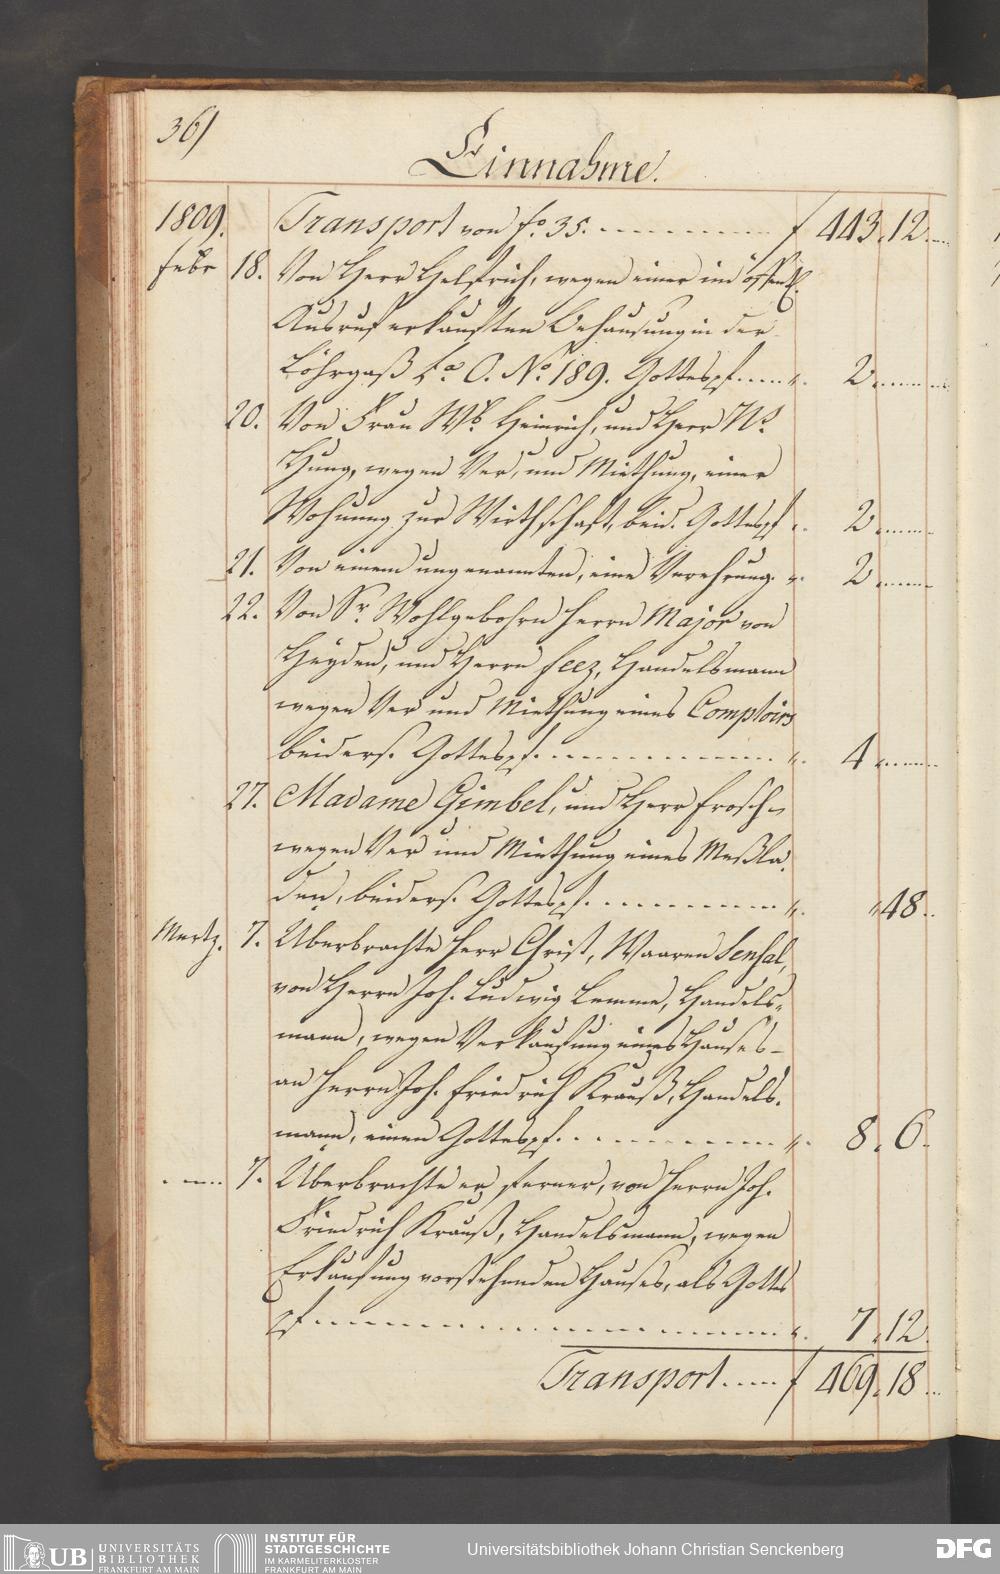 36/
Einnahme.
1809. Transport von fo. 35. f 443. 12.
Febr 18. Von Herr Helfrich, wegen einer im öffentl.
Ausruf erkauften Behausung in der
Löhrgaß La. O. No. 189. Gottespf. „ 2
20. Von Frau Wb. Heinrich, und Herr Ns.
Hung, wegen Ver, und Miethung, einer
Wohnung zur Wirthschaft, beid. Gottespf „ 2
21. Von einem ungenannten, eine Verehrung. „ 2
22. Von Sr. Wohlgebohrn Herrn Major von
Heyden, und Herrn Feez, Handelsmann
wegen Ver und Miethung eines Comptoirs
beiders. Gottespf. „ 4
27. Madame Gimbel, und Herr Frosch,
wegen Ver und Miethung eines Meßla,
den, beiders. Gottespf. „ „ 48.
Mertz. 7. Uberbrachte Herr Christ, Waaren Sensal,
von Herrn Joh. Ludwig Lemme, Handels,
mann, wegen Verkaufung eines Hauses
an Herrn Joh. Friedrich Krauß, Handels,
mann, einen Gottespf. „ 8. 6.
7. Uberbrachte er ferner, von Herrn Joh.
Friedrich Krauß, Handelsmann, wegen
Erkaufung vorstehenden Hauses, als Gottes
pf „ 7. 12.
Transport f 469. 18
UB UNIVERSITÄTS
BIBLIOTHEK
FRANKFURT AM MAIN
INSTITUT FÜR
STADTGESCHICHTE
IM KARMELITERKLOSTER
FRANKFURT AM MAIN
Universitätsbibliothek Johann Christian Senckenberg
DFG